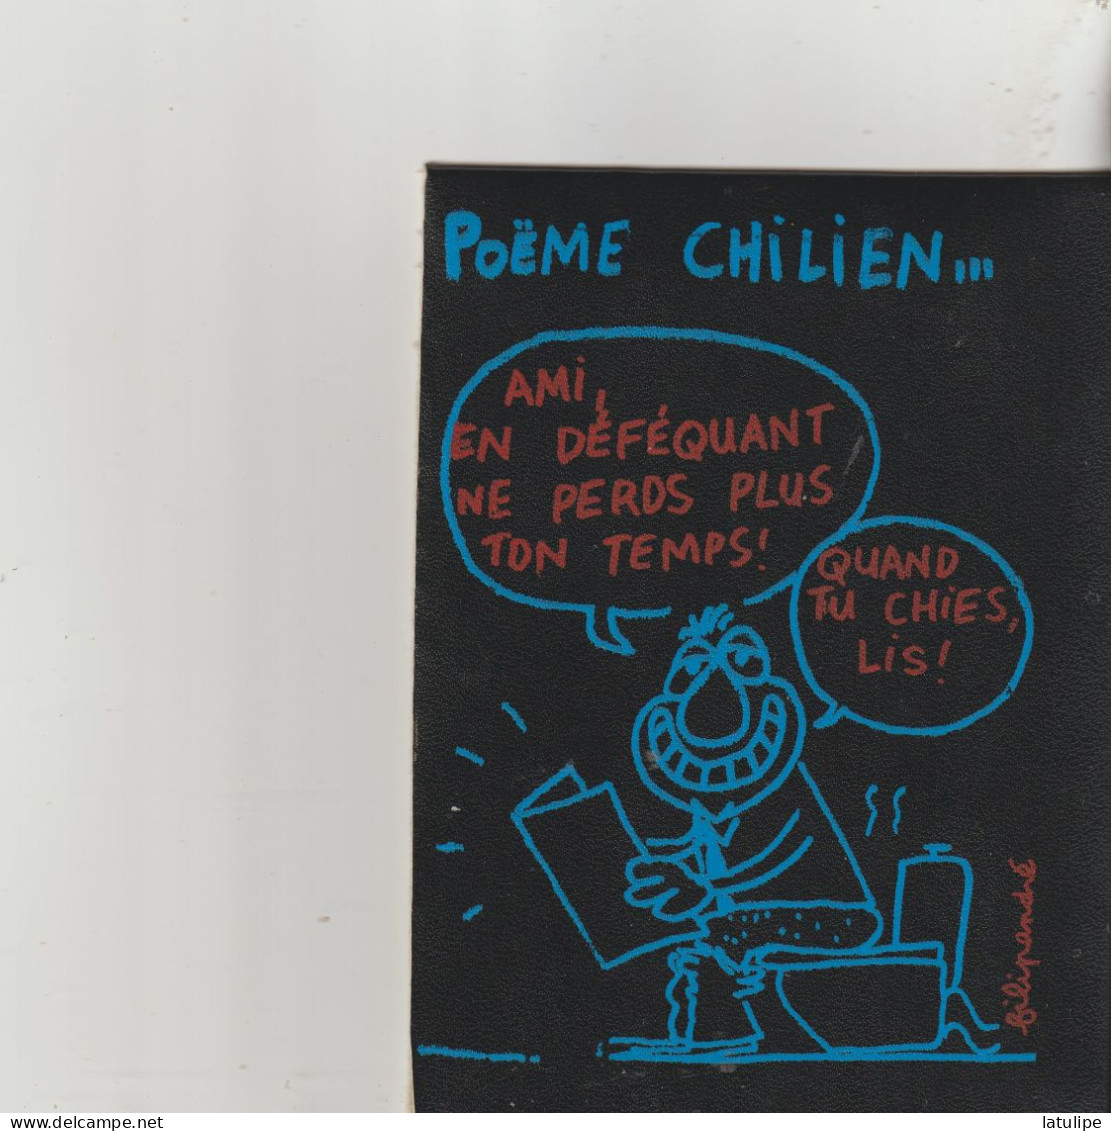 POËME CHILIEN...
AMI,
EN DÉFÉQUANT
NE PERDS PLUS
TON TEMPS!
QUAND
TU CHIES,
LIS!
filipandré
delcampe.net
latulipe